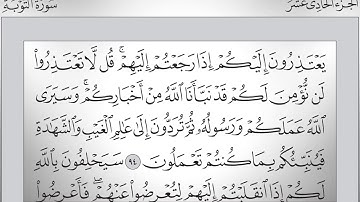 الجزء الحادي عشر سورة التوبة
يَعْتَذِرُونَ إِلَيْكُمْ إِذَا رَجَعْتُمْ إِلَيْهِمْ ۚ قُل لَّا تَعْتَذِرُوا۟
لَن نُّؤْمِنَ لَكُمْ قَدْ نَبَّأَنَا ٱللَّهُ مِنْ أَخْبَارِكُمْ ۚ وَسَيَرَى
ٱللَّهُ عَمَلَكُمْ وَرَسُولُهُۥ ثُمَّ تُرَدُّونَ إِلَىٰ عَـٰلِمِ ٱلْغَيْبِ وَٱلشَّهَـٰدَةِ
فَيُنَبِّئُكُم بِمَا كُنتُمْ تَعْمَلُونَ ٩٤ سَيَحْلِفُونَ بِٱللَّهِ
لَكُمْ إِذَا ٱنقَلَبْتُمْ إِلَيْهِمْ لِتُعْرِضُوا۟ عَنْهُمْ ۖ فَأَعْرِضُوا۟